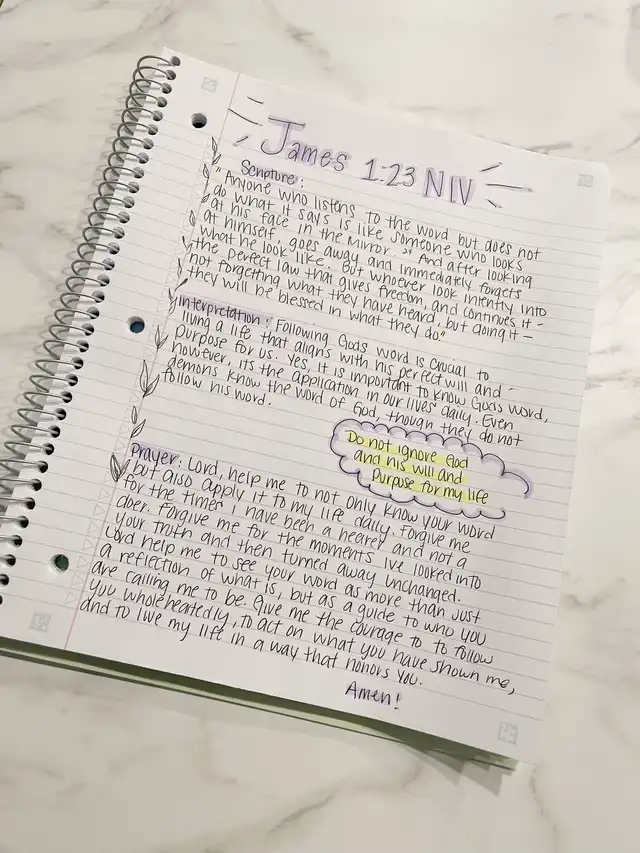 James 1:23 NIV
Scripture:
"Anyone who listens to the word but does not
do what it says is like someone who looks
at his face in the mirror. 24 And after looking
at himself, goes away and immediately forgets
what he look like. But whoever look intently into
the perfect law that gives freedom, and continues it -
not forgetting what they have heard, but doing it —
they will be blessed in what they do"
Interpretation: Following Gods word is crucial to
living a life that aligns with his perfect will and
purpose for us. Yes, it is important to know Gods word,
however, its the application in our lives daily. Even
demons know the word of God, though they do not
follow his word.
Do not ignore God
and his will and
Purpose for my life
Prayer: Lord, help me to not only know your word
but also apply it to my life daily. Forgive me
for the times I have been a hearer and not a
doer. Forgive me for the moments ive looked into
your truth and then turned away unchanged.
Lord help me to see your word as more than just
a reflection of what is, but as a guide to who you
are calling me to be. Give me the courage to to follow
you wholeheatedly, to act on what you have shown me,
and to live my life in a way that honors you.
Amen!